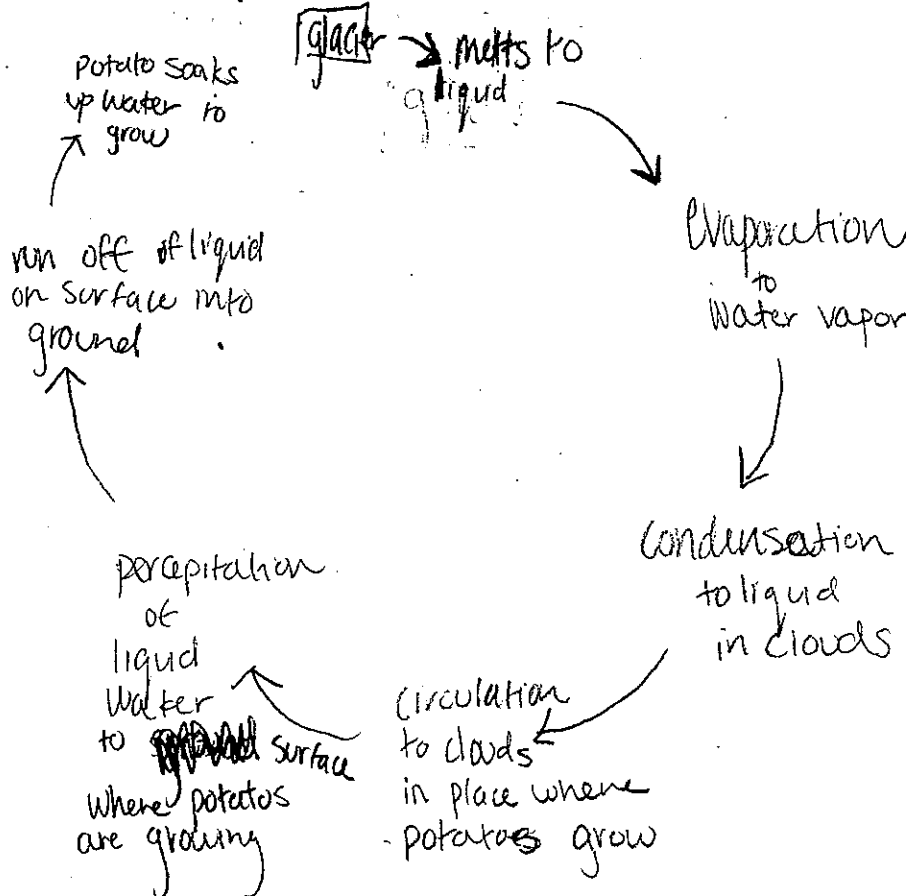 glacier
melts to
liquid
evaporation
to
water vapor
condensation
to liquid
in clouds
circulation
to clouds
in place where
potatoes grow
percepitation
of
liquid
water
to surface
where potatos
are growing
run off of liquid
on surface into
ground
potato soaks
up water to
grow